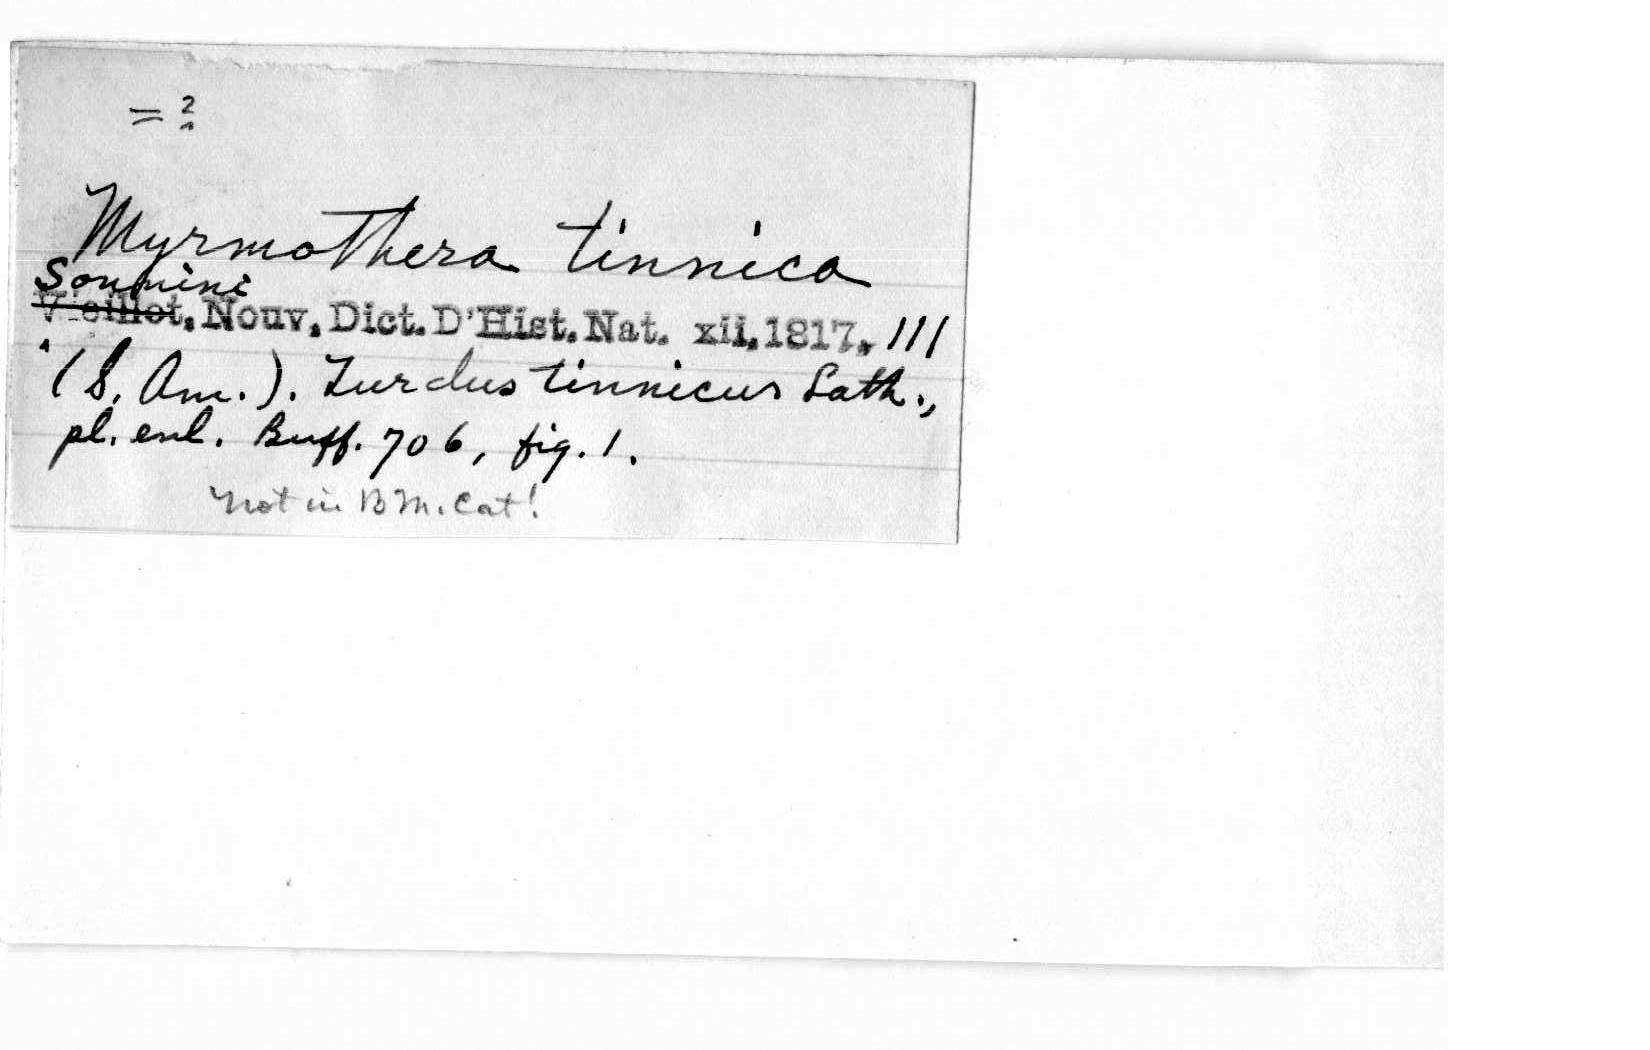 = ?
Myrmothera tinnica
Sonnini
Vieillot, Nouv, Dict. D'Hist. Nat. xii, 1817, 111
(S. Am.). Turdus tinnicus Lath.,
pl. enl. Buff. 706, fig. 1.
Not in B M. Cat!